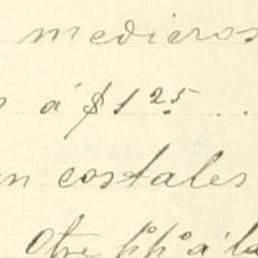 medieros
á $1 25 ..
en costales
Otre p.p.º á la